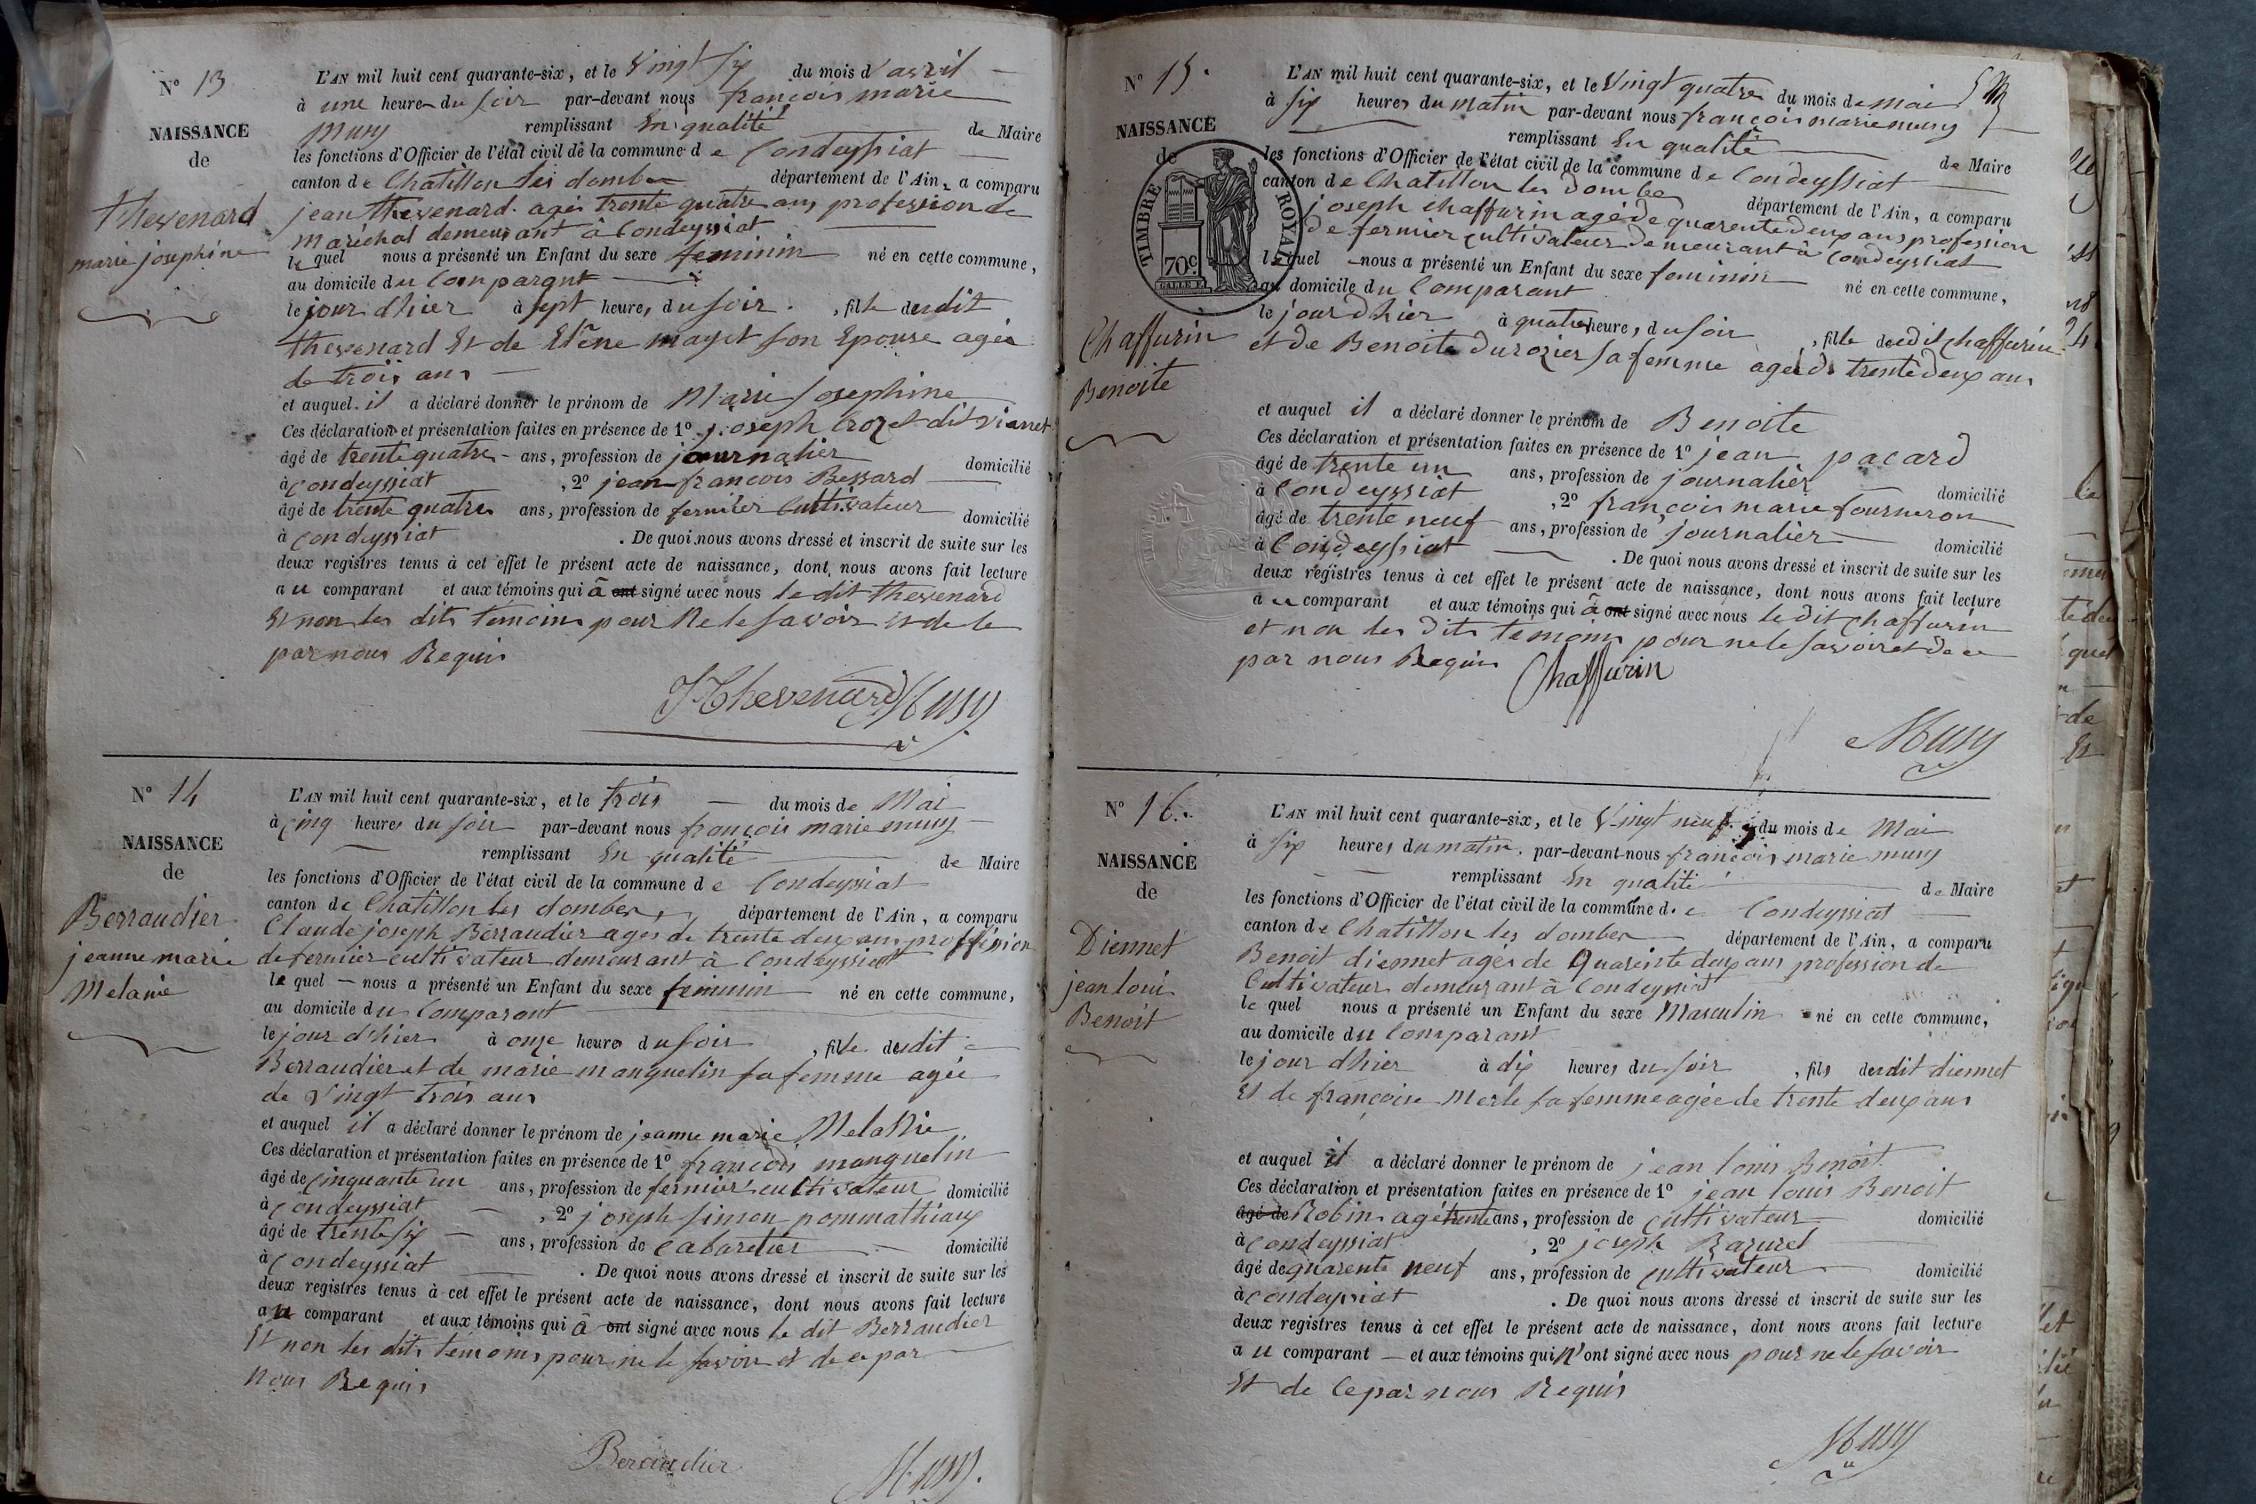 N° 13
NAISSANCE
de
Thevenard
marie josephine
L'AN mil huit cent quarante-six, et le Vingt six du mois d'avril
à une heure du soir par-devant nous françois marie
Musy remplissant En qualité de Maire
les fonctions d'Officier de l'état civil de la commune de Condeyssiat
canton de Chatillon les dombes département de l'Ain, a comparu
jean thevenard agés trente quatre ans profession de
maréchal demeurant à Condeyssiat
lequel nous a présenté un Enfant du sexe feminin né en cette commune,
au domicile du Comparant
le jour d'hier à sept heures du soir, fille dudit
thevenard Et de Son Epouse agée
de trois ans
et auquel il a déclaré donner le prénom de Marie Josephine
Ces déclaration et présentation faites en présence de 1° joseph Crozet dit vianet
âgé de trente quatre ans, profession de journalier domicilié
à condeyssiat, 2° jean françois Bessard
âgé de trente quatre ans, profession de fermier Cultivateur domicilié
à condeyssiat. De quoi nous avons dressé et inscrit de suite sur les
deux registres tenus à cet effet le présent acte de naissance, dont nous avons fait lecture
au comparant et aux témoins qui à ont signé avec nous le dit thevenard
Et non les dits temoins pour Ne le savoir Et de le
par nous Requis
JThevenard Musy
N° 14
NAISSANCE
de
Berraudier
jeanne marie
Melanie
L'AN mil huit cent quarante-six, et le trois du mois de Mai
à cinq heures du soir par-devant nous françois marie musy
remplissant En qualité de Maire
les fonctions d'Officier de l'état civil de la commune de Condeyssiat
canton de Chatillon les dombes, département de l'Ain, a comparu
Claude joseph Berraudier ages de trente deux ans proffesion
de fermier cultivateur demeurant à Condeyssiat
le quel nous a présenté un Enfant du sexe feminin né en cette commune,
au domicile du Comparant
le jour d'hier à onze heures du soir, fille dudit
Berraudier et de marie manguelin sa femme agée
de Vingt trois ans
et auquel il a déclaré donner le prénom de jeanne marie Melanie
Ces déclaration et présentation faites en présence de 1° françois manguelin
âgé de cinquante un ans, profession de fermier cultivateur domicilié
à condeyssiat, 2° joseph simon pommathiaux
âgé de trente six ans, profession de Cabaretier domicilié
à Condeyssiat. De quoi nous avons dressé et inscrit de suite sur les
deux registres tenus à cet effet le présent acte de naissance, dont nous avons fait lecture
au comparant et aux témoins qui à ont signé avec nous le dit Berraudier
Et non les dits temoins pour ne le savoir et de ce par
nous Requis
Beraudier Musy.
N° 15.
NAISSANCE
de
TIMBRE ROYAL
70c
Chaffurin
Benoite
L'AN mil huit cent quarante-six, et le Vingt quatre du mois de mai
à six heures du matin par-devant nous françois marie musy
remplissant En qualité de Maire
les fonctions d'Officier de l'état civil de la commune de Condeyssiat
canton de Chatillon les dombes département de l'Ain, a comparu
joseph chaffurin agé de quarente deux ans profession
de fermier cultivateur demeurant à Condeyssiat
lequel nous a présenté un Enfant du sexe feminin né en cette commune,
au domicile du Comparant
le jour d'hier à quatre heures du soir, fille dudit chaffurin
et de Benoite Durozier sa femme ageé de trente deux ans
et auquel il a déclaré donner le prénom de Benoite
Ces déclaration et présentation faites en présence de 1° jean pacard
âgé de trente un ans, profession de journalier domicilié
à Condeyssiat, 2° françois marie fourneron
âgé de trente neuf ans, profession de journalier domicilié
à Condeyssiat. De quoi nous avons dressé et inscrit de suite sur les
deux registres tenus à cet effet le présent acte de naissance, dont nous avons fait lecture
au comparant et aux témoins qui à ont signé avec nous le dit chaffurin
et non les dits temoins pour ne le savoir et de ce
par nous Requis Chaffurin
Musy
N° 16.
NAISSANCE
de
Diennet
jean loui
Benoit
L'AN mil huit cent quarante-six, et le Vingt neuf du mois de Mai
à six heures du matin. par-devant nous françois marie musy
remplissant En qualité de Maire
les fonctions d'Officier de l'état civil de la commune de Condeyssiat
canton de Chatillon les dombes département de l'Ain, a comparu
Benoit diennet agés de Quarente deux ans profession de
Cultivateur demeurant à Condeyssiat
le quel nous a présenté un Enfant du sexe Masculin né en cette commune,
au domicile du Comparant
le jour d'hier à dix heures du soir, fils dudit diennet
Et de françoise Merle sa femme agée de trente deux ans
et auquel il a déclaré donner le prénom de jean louis Benoit.
Ces déclaration et présentation faites en présence de 1° jean louis Benoit
âgé de Robin agé trente ans, profession de cultivateur domicilié
à condeyssiat, 2° joseph Bazurel
âgé de quarente neuf ans, profession de cultivateur domicilié
à condeyssiat. De quoi nous avons dressé et inscrit de suite sur les
deux registres tenus à cet effet le présent acte de naissance, dont nous avons fait lecture
au comparant et aux témoins qui n'ont signé avec nous pour ne le savoir
Et de Ce par nous Requis
Musy